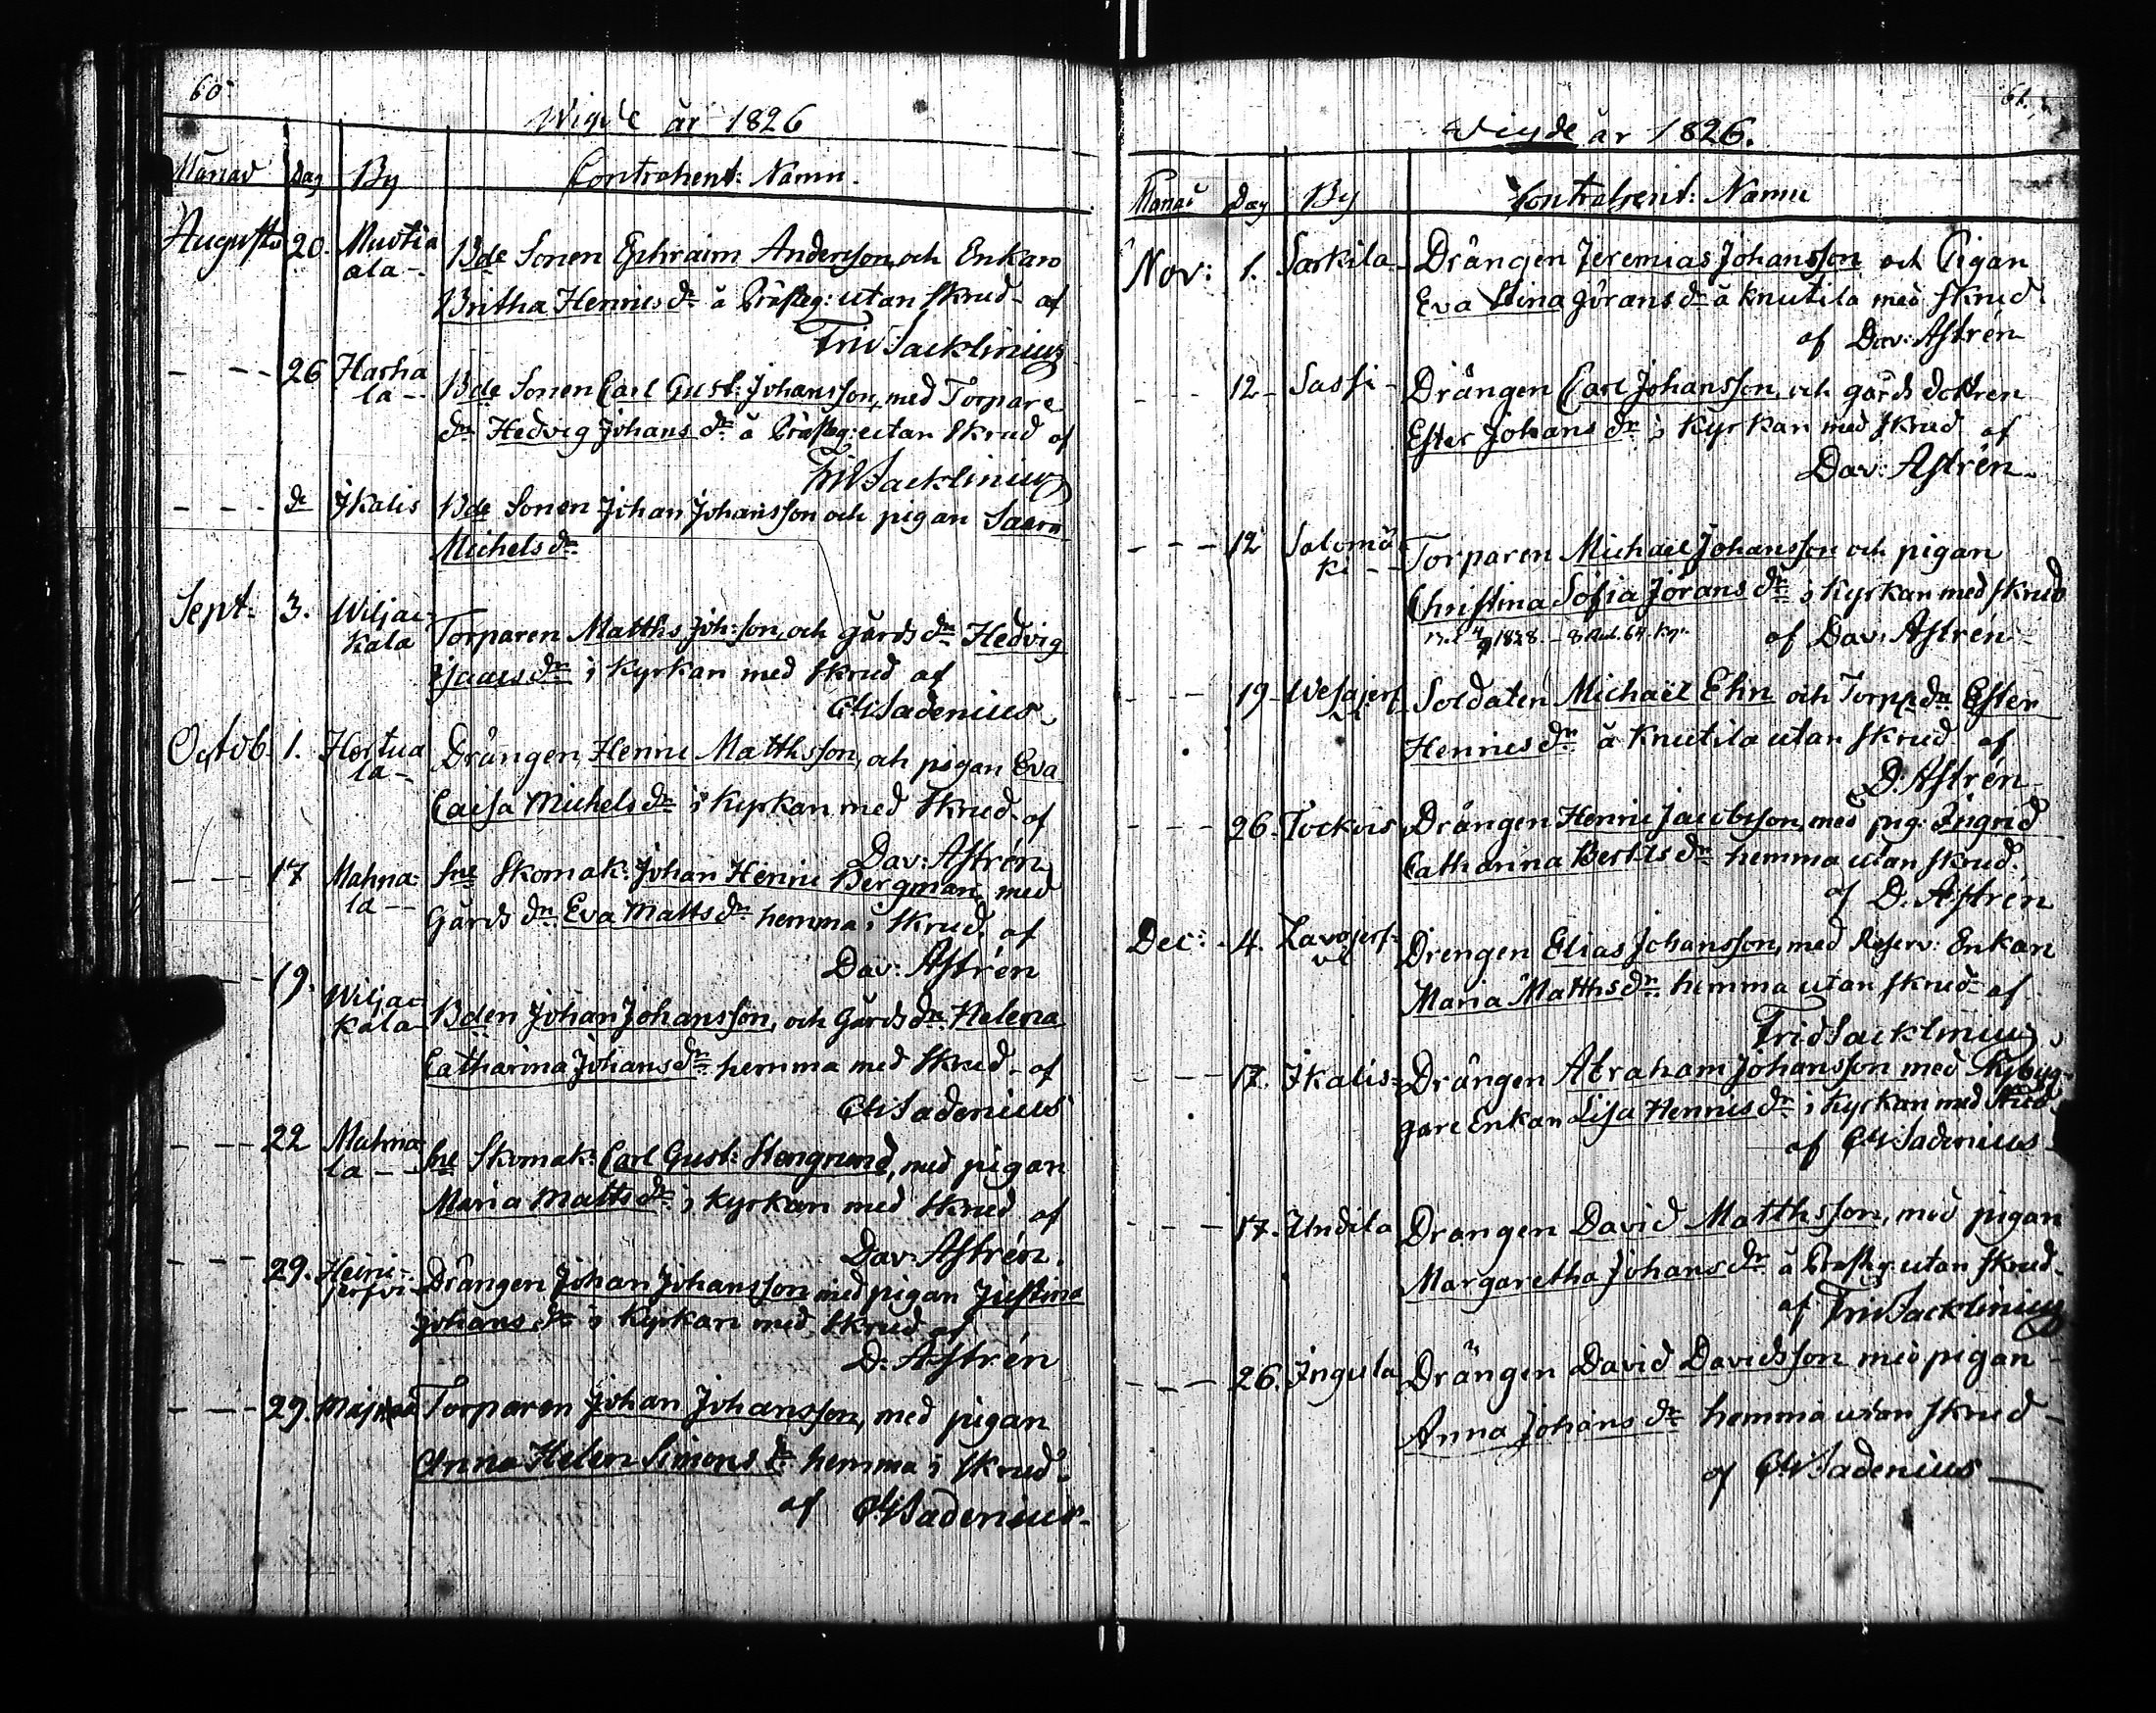 60.
Wigde år 1826
Månad Dag By Contrahent: Namn.
Augusti 20. Mustia Bde Sonen Ephraim Andersson, och Enkan
ala - Britha Henrics dr å Prästg: utan skrud - af
Frid Sacklinius
- - - 26 Harha Bde Sonen Carl Gust: Johansson, med Torpare
la - - dr Hedvig Johans dr å Prästg: utan skrud af
Frid Sacklinius
- - - do Jkalis Bde Sonen Johan Johansson och pigan Saara
Michels dr
Sept. 3. Wiljac- Torparen Matths Joh:son, och gårds dr Hedvig
kala Isaacs dr i Kyrkan med skrud af
Sadenius
Octob. 1. Hertua Drängen Henric Matthsson, och pigan Eva
la - Caisa Michels dr i Kyrkan med Skrud - af
Dav: Astrén
- - - 17 Mahna- Sne Skomak: Johan Henric Bergman, med
la - - Gårds dr Eva Matts dr hemma i skrud af
Dav: Astrén
19. Wiljac- Bden Johan Johansson, och Gårds dr Helena
kala Catharina Johans dr hemma med skrud - af
Sadenius
- - - 22 Mahna- Sne Skomak: Carl Gust: Stengrund, med pigan
la - - Maria Matts dr i Kyrkan med skrud af
Dav: Astrén.
- - - 29. Heini- Drängen Johan Johansson med pigan Justina
jerfvi - Johans dr i Kyrkan med skrud af
D: Astrén
- - - 29. Torparen Johan Johansson, med pigan
Anna Helen Simons dr hemma i skrud -
af Sadenius -
61.
Vigde år 1826.
Månad Dag By Contrahent: Namn
Nov: 1. Sarkila - Drängen Jeremias Johansson och Pigan
Eva Stina Jörans dr å Knutila med skrud
af Dav: Astrén
- - - 12 - Sassi - Drängen Carl Johansson, och gårds dottren
Ester Johans dr i Kyrkan med skrud af
Dav: Astrén -
- - - 12 Salomä- Torparen Michael Johansson och pigan
ki - - Christina Sofia Jörans dr i Kyrkan med skrud
1828. af Dav: Astrén -
- - 19 - Wesajerf- Soldaten Michaël Ehn och Torp: dr Ester
vi Henrics dr å Knutila utan skrud af
D: Astrén -
- - - 26. Tockois Drängen Henric Jacobsson, med pig: Ingrid
Catharina Bertils dr hemma utan skrud.
af D. Astrén
Dec: - 4. Lavajerf- Drengen Elias Johansson, med Reserv: Enkan
vi Maria Matths dr hemma utan skrud - af
Frid Sacklinius
- - - 17. Jkalis - Drängen Abraham Johansson med Nybyg-
gare Enkan Lisa Henrics dr i Kyrkan med skrud
af Sadenius -
- - - 17. Undila Drängen David Matthsson, med pigan
Margaretha Johans dr å Prästg: utan skrud -
af Frid Sacklinius
- - - 26. Ingula Drängen David Davidsson med pigan -
Anna Johans dr hemma utan skrud -
af Sadenius -